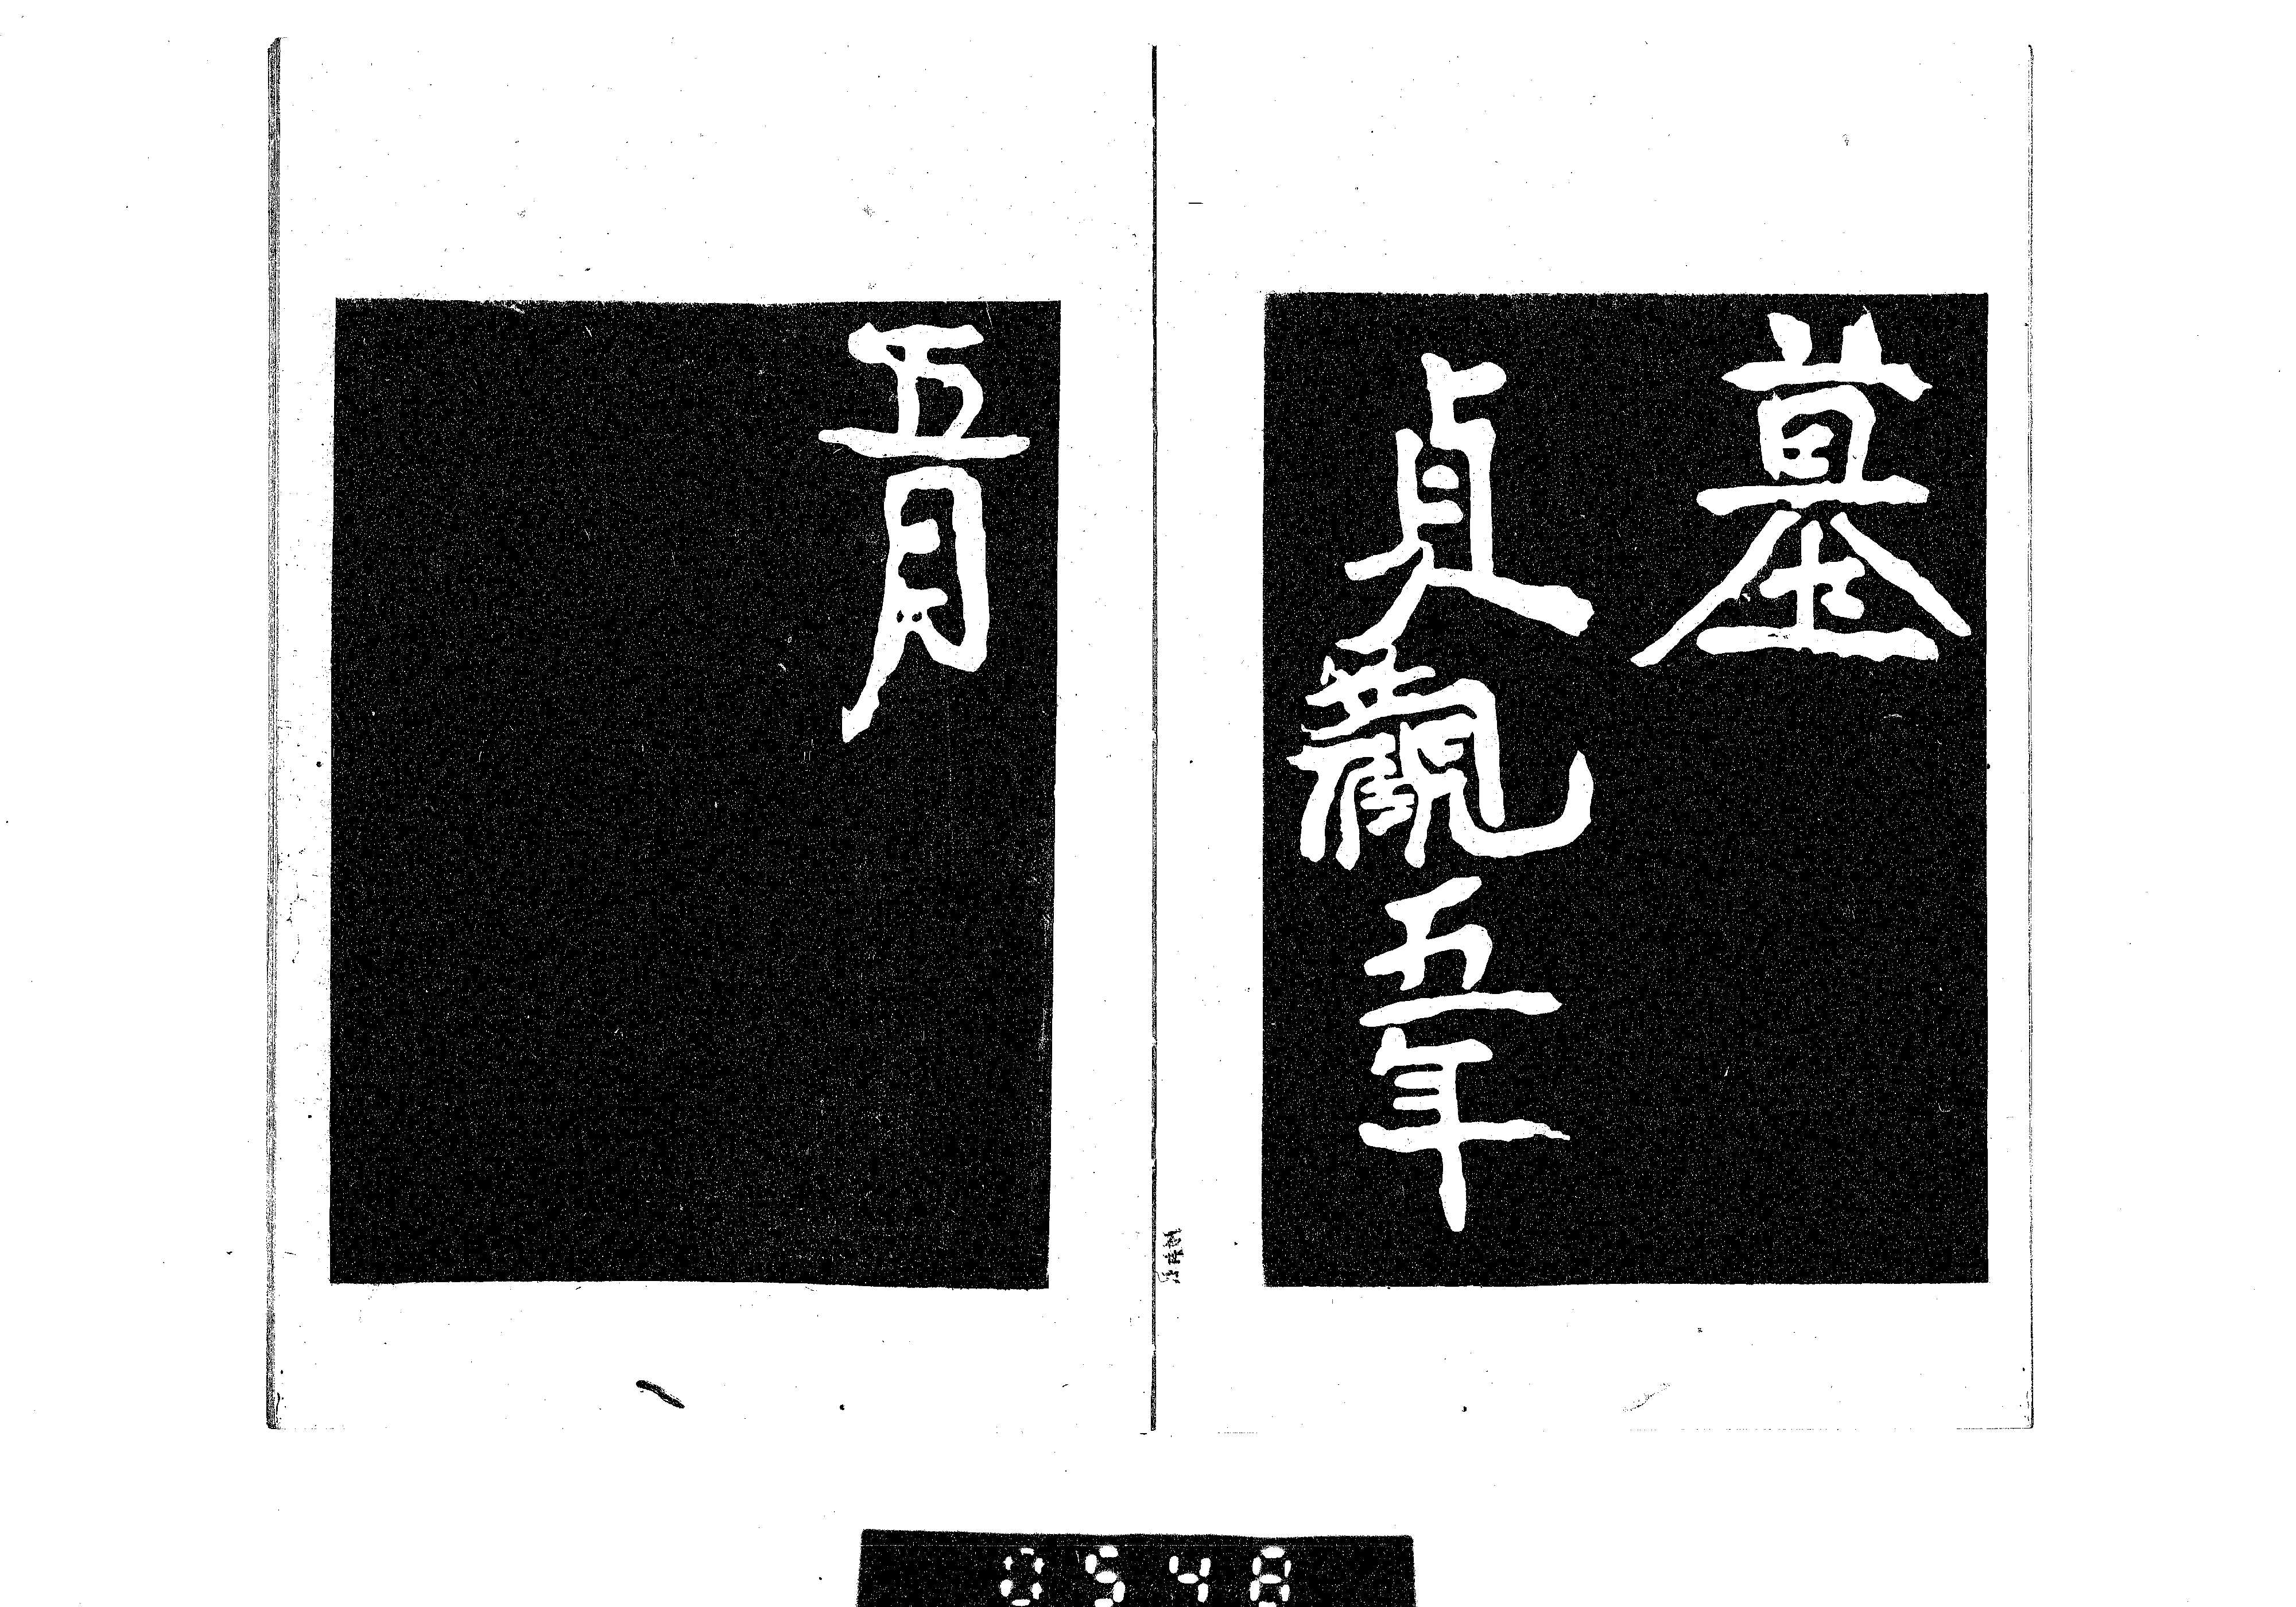 墓
貞觀五年
五月
0548